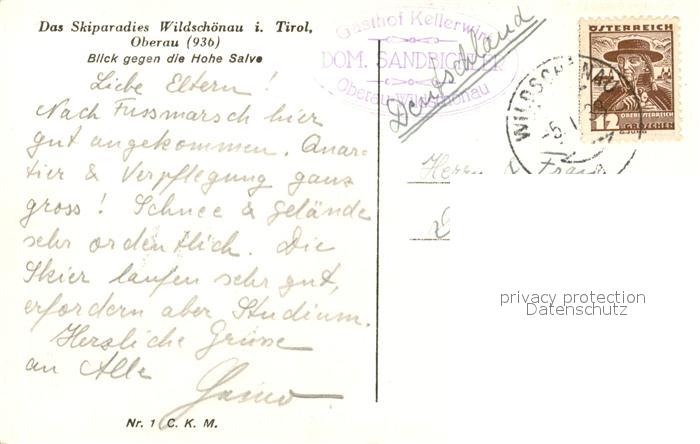 Das Skiparadies Wildschönau i. Tirol,
Oberau (936)
Blick gegen die Hohe Salve
Liebe Eltern!
Nach Fussmarsch hier
gut angekommen. Quar-
tier & Verpflegung ganz
gross! Schnee & Gelände
sehr ordentlich. Die
Skier laufen sehr gut,
erfordern aber Studium.
Herzliche Grüsse
an Alle
Nr. 1 C. K. M.
Gasthof Kellerwirt
DOM. SANDBICHLER
Oberau-Wildschönau
Deutschland
ÖSTERREICH
12
OBERÖSTERREICH
GROSCHEN
WILDSCHÖNAU
Herrn
privacy protection
Datenschutz